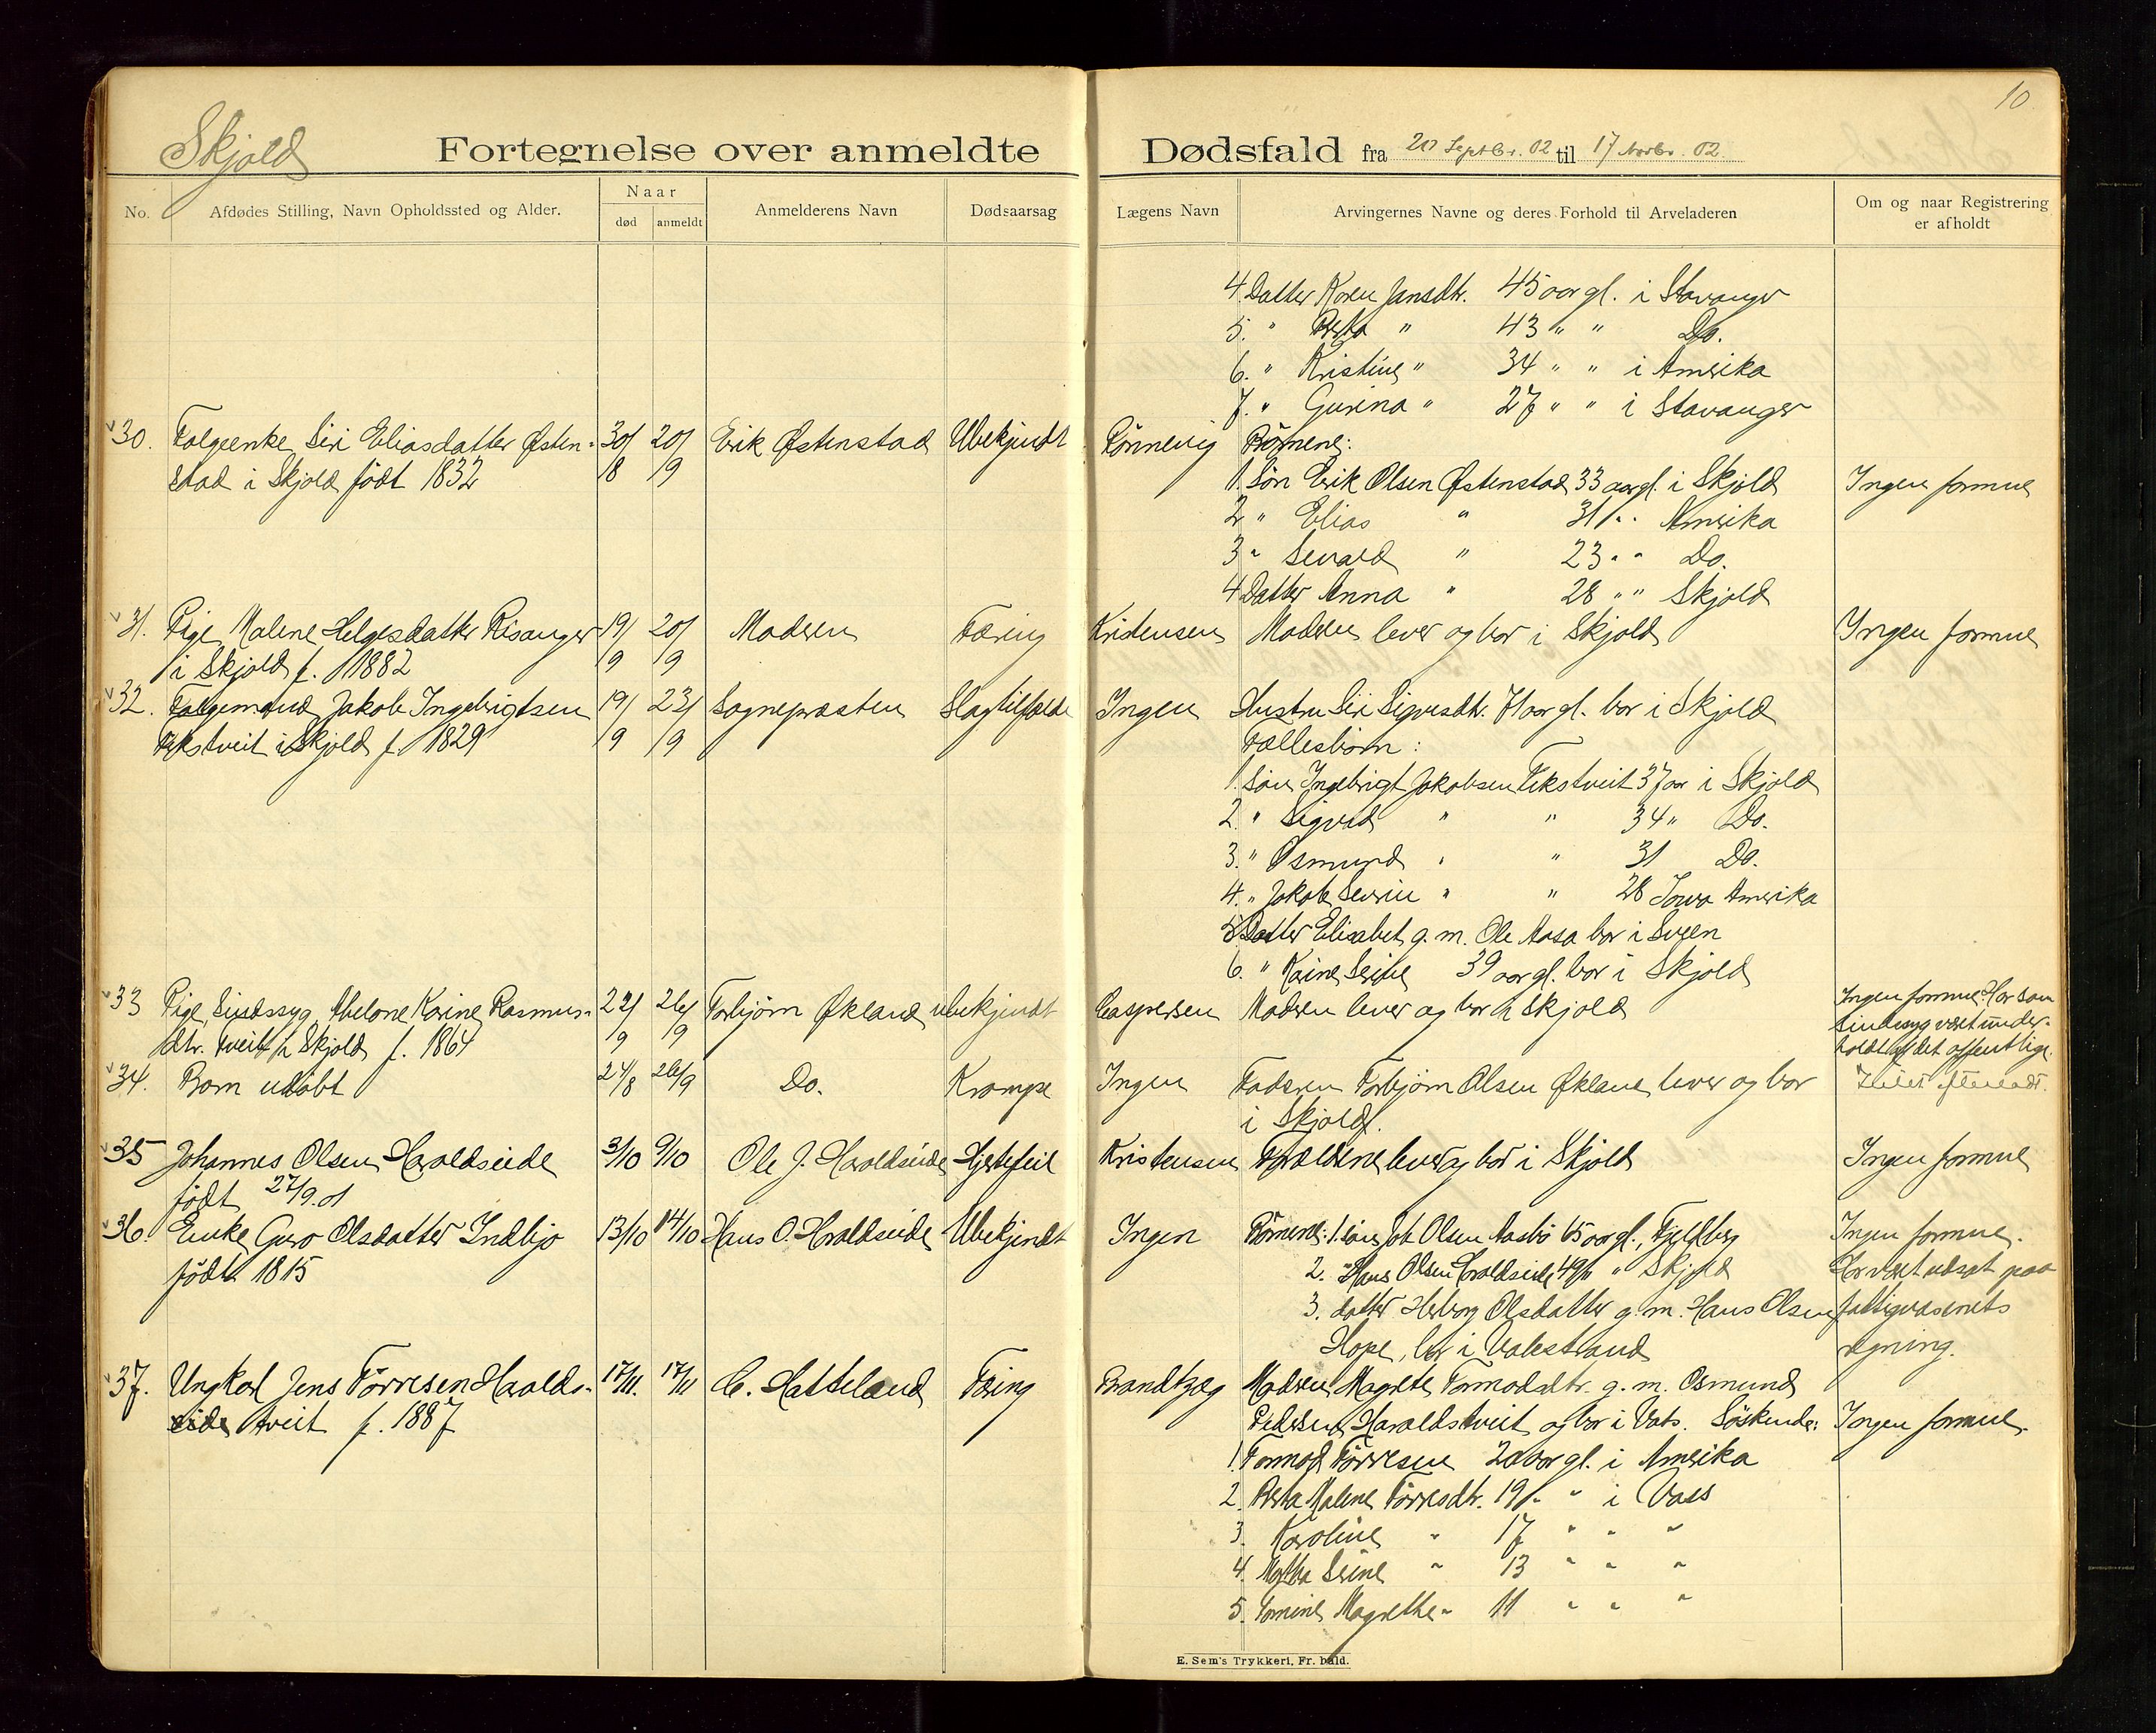 10
Skjold Fortegnelse over anmeldte Dødsfald fra 20 Septbr. 02 til 17 Novbr. 02.
No. Afdødes Stilling, Navn Opholdssted og Alder. Naar Anmelderens Navn Dødsaarsag Lægens Navn Arvingernes Navne og deres Forhold til Arveladeren Om og naar Registrering
død anmeldt er afholdt
4. Datter Karen Jansdtr. 45 aar gl. i Stavanger
5. " Berta " 43 " " Do.
6. " Kristine " 34 " " i Amerika
7. " Gurina " 27 " " i Stavanger
30. Folgeenke Siri Eliasdatter Østen- 30/ 20/ Erik Østenstad Ubekjendt Rönnevig Börnene:
stad i Skjold födt 1832 8 9 1. Sön Erik Olsen Østenstad 33 aar gl. i Skjold Ingen formue
2 " Elias " 31 " " Amerika
3 " Sevald " 23 " " Do.
4 Datter Anna " 28 " " Skjold
31. Pige Malene Helgesdatter Risanger 19/ 20/ Moderen Tæring Kristensen Moderen lever og bor i Skjold Ingen formue
i Skjold f. 1882 9 9
32. Folgemand Jakob Ingebrigtsen 19/ 23/ Sognepræsten Slagtilfælde Ingen Hustru Siri Sigvesdtr. 71 aar gl. bor i Skjold
Tekstveit i Skjold f. 1829 9 9 Fællesbörn:
1. Sön Ingebrigt Jakobsen Tekstveit 37 aar i Skjold
2. " Sigvad " " 34 " Do.
3. " Osmund " " 31 Do.
4. " Jakob Severin " " 28 Iowa Amerika
5 Datter Elisabet g. m. Ole Aasa bor i Sveen
6. " Karine Serine 39 aar gl. bor i Skjold
33 Pige, Sindssyg, Abelone Karine Rasmus- 22/ 26/ Torbjörn Økland ubekjendt Caspersen Moderen lever og bor i Skjold Ingen formue. Har som
dtr. Tveit i Skjold f. 1864 9 9 sindssyg været under-
holdt af det offentlige.
34. Barn udöbt 24/8 26/9 Do. Krampe Ingen Faderen Torbjörn Olsen Økland lever og bor Intet efterladt.
i Skjold.
35 Johannes Olsen Haraldseide 3/10 9/10 Ole J. Haraldseide Hjertefeil Kristensen Forældrene lever og bor i Skjold Ingen formue
födt 27/9.01
36. Enke Guro Olsdatter Indbjo 13/10 14/10 Hans O. Haraldseide Ubekjendt Ingen Börnene: 1. sön Joh. Olsen Aasbö 65 aar gl., Fjeldberg Ingen formue.
födt 1815 2. " Hans Olsen Haraldseide 49 " " Skjold Har været udsat paa
3. datter Herborg Olsdatter g. m. Hans Olsen fattigvæsenets
Hope, bor i Valestrand regning.
37. Ungkarl Jens Törresen Haralds- 17/11. 17/11 C. Hatteland Tæring Brandtzæg Moderen Magrete Tormodsdtr. g. m. Osmund
tveit f. 1887 Pedersen Haraldstveit og bor i Vats. Söskende: Ingen formue.
1. Tormod Törresen 20 aar gl. i Amerika
2. Berta Malene Törresdtr. 19 " " i Vats
3. Karoline " 17 " " "
4. Martha Serine " 13 " " "
5. Tomine Magrethe " 11 " " "
E. Sem's Trykkeri, Fr. hald.